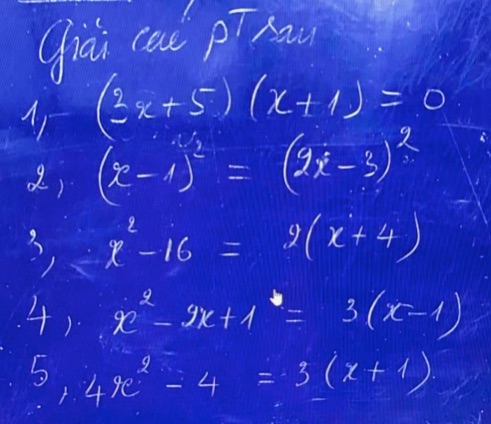 Giải các pT sau
1, (3x+5) (x+1) = 0
2, (x-1)² = (2x-3)²
3, x² - 16 = 2(x+4)
4, x² - 2x + 1 = 3(x-1)
5, 4x² - 4 = 3(x+1)